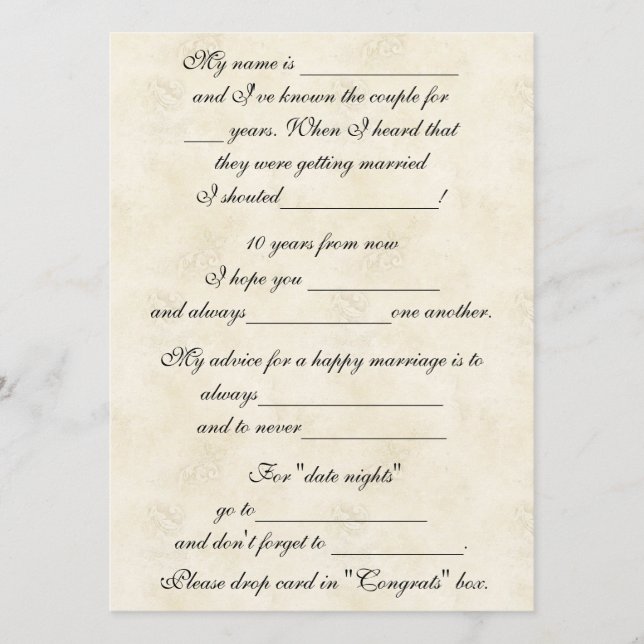 My name is _______________
and I've known the couple for
____ years. When I heard that
they were getting married
I shouted_______________!
10 years from now
I hope you _____________
and always______________one another.
My advice for a happy marriage is to
always__________________
and to never______________
For "date nights"
go to_________________
and don't forget to _____________.
Please drop card in "Congrats" box.